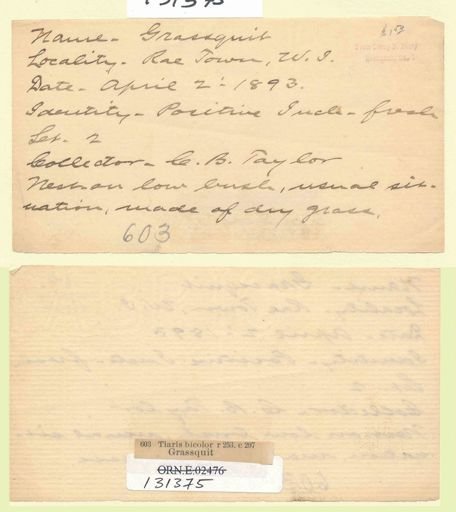 131375
Name - Grassquit
£1/53
Locality - Rae Town, W. I.
Date - April 2 - 1893.
Identity - Positive Incb - fresh
Set - 2
Collector - C. B. Taylor
Nest on low bush, usual sit-
uation, made of dry grass.
603
603 Tiaris bicolor r 253. e 297
Grassquit
ORN.E.02476
131375